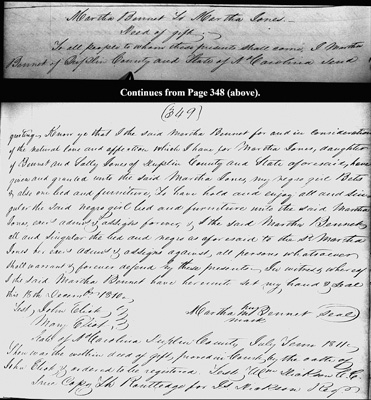 Martha Bennet To Martha Jones
Deed of gift
To all people to whom these presents shall come, I Martha
Bennet of Duplin County and State of No Carolina Send
Continues from Page 348 (above).
(349)
greeting, Know ye that I the said Martha Bennet for and in consideration
of the natural love and affection which I have for Martha Jones, daughter
of and Sally Jones of Duplin County and State aforesaid, have
given and granted unto the said Martha Jones, my negro girl
& also on bed and furniture, To have hold and enjoy all and
the said negro girl bed and furniture unto the said Martha
Jones, & assigns forever, & I the said Martha Bennet
all and Singular the bed and negro as aforesaid to the Sd Martha
Jones her & assigns against all persons whatsoever
Shall warrant & forever defend by these presents. In witness whereof
I the said Martha Bennet have hereunto set my hand & seal
this 18th 1810.
Test, John
Mary
Martha her mark Bennet Seal
State of No Carolina Duplin County July Term 1811.
Then was the within deed of gift, proved in Court by the oath of
John & ordered to be registered. Test Wm
True Copy for